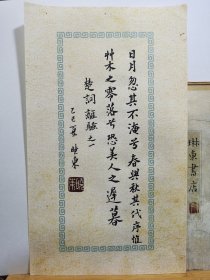 日月忽其不淹兮春與秋其代序惟
艸木之零落兮恐美人之遲暮
楚詞離騷之一
乙巳夏
琳東書店